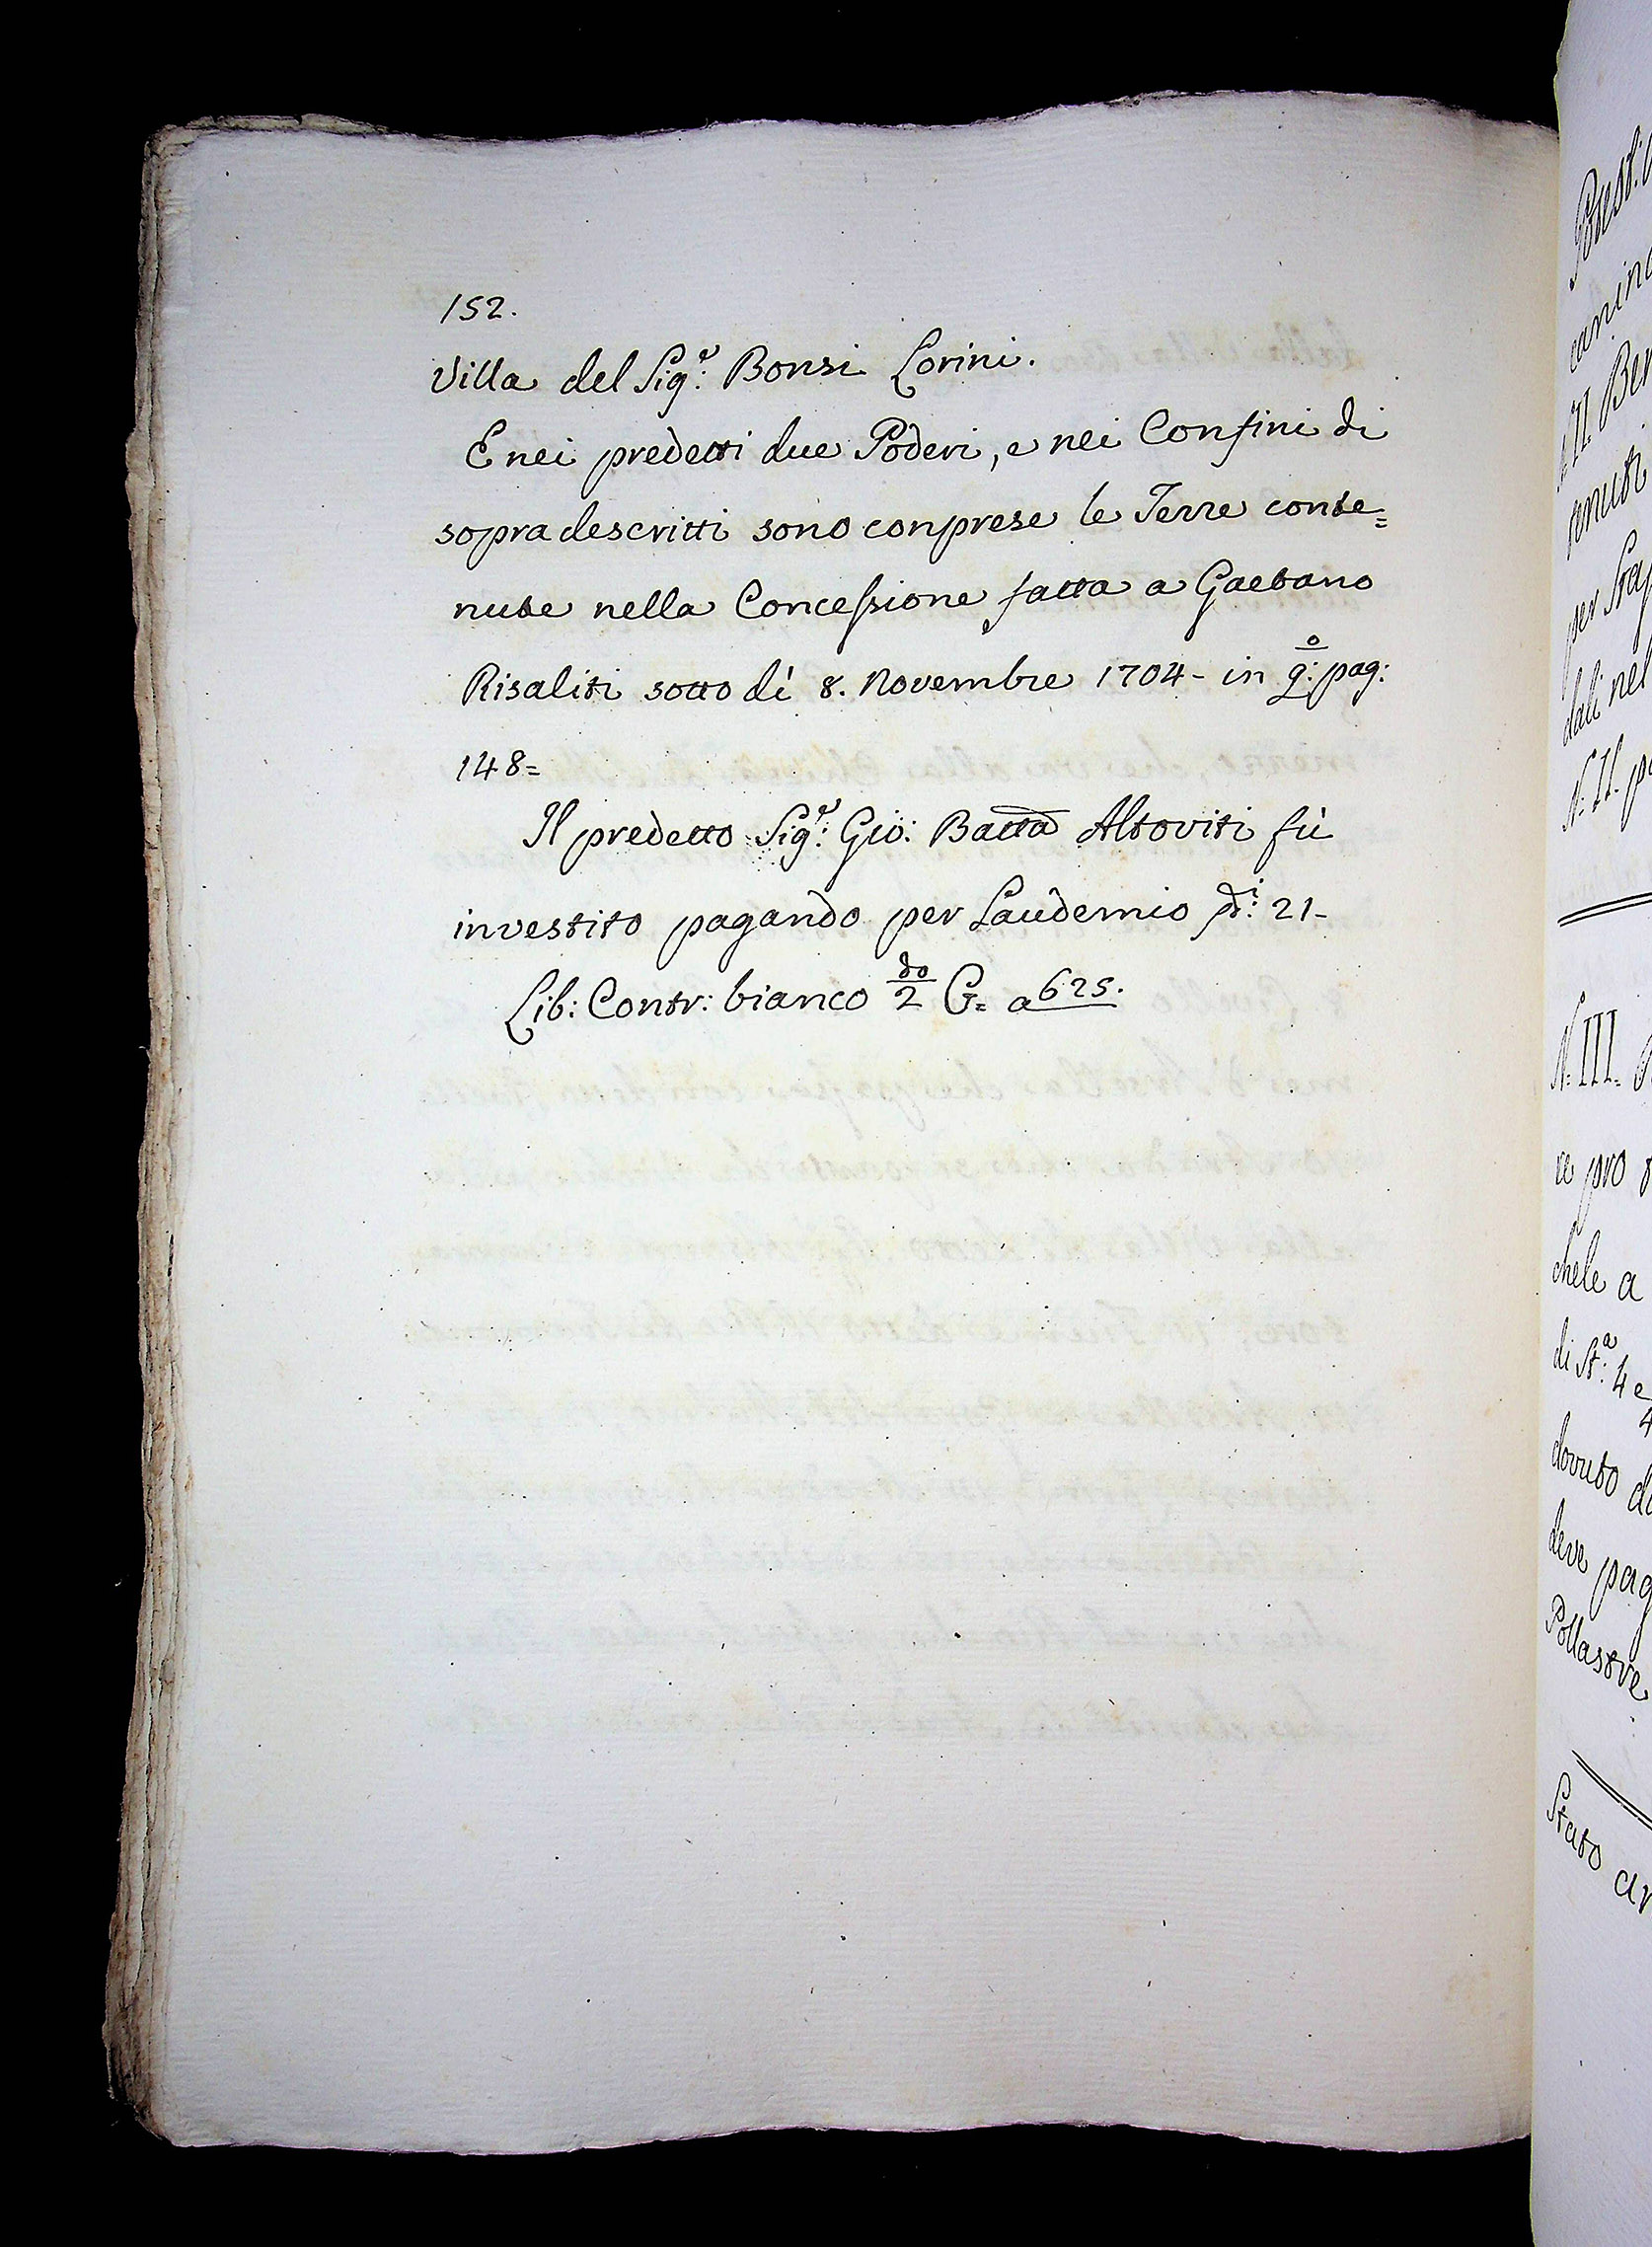 152.
Villa del Sig.re Bonsi Lorini.
E nei predetti due Poderi, e nei Confini di
sopra descritti sono conprese le Terre conte=
nute nella Concessione fatta a Gaetano
Risaliti sotto dì 8. Novembre 1704 - in q:o pag:
148=
Il predetto Sig:r Gio: Batta Altoviti fù
investito pagando per Laudemio 21-
Lib: Contr: bianco 2do G= a 625.
Potest:
camina
N: II. Ber
tenuti
per Stag
dali nel
N: II. p
N: III.
re pro
chele a
di St:a 4 e
dovuto d
deve pag
Pollastre
Stato an